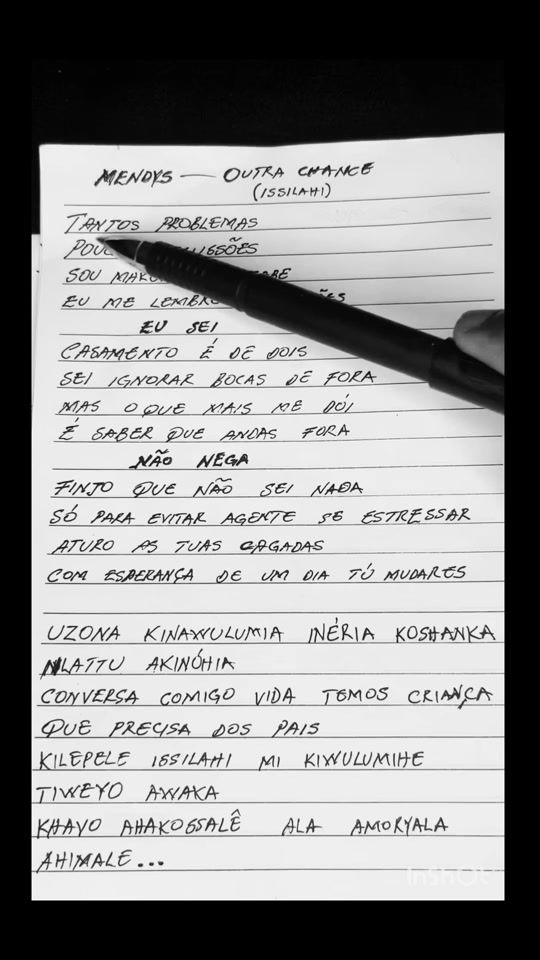 MENDYS — OUTRA CHANCE
(ISSILAHI)
TANTOS PROBLEMAS
SOU
EU ME
EU SEI
CASAMENTO É DE DOIS
SEI IGNORAR BOCAS DE FORA
MAS O QUE MAIS ME DÓI
É SABER QUE ANDAS FORA
NÃO NEGA
FINJO QUE NÃO SEI NADA
SÓ PARA EVITAR AGENTE SE ESTRESSAR
ATURO AS TUAS CAGADAS
COM ESPERANÇA DE UM DIA TÚ MUDARES
UZONA KINAWULUMIA INÉRIA KOSHANKA
NLATTU AKINÓHIA
CONVERSA COMIGO VIDA TEMOS CRIANÇA
QUE PRECISA DOS PAIS
KILEPELE ISSILAHI MI KIWULUMIHE
TIWEYO AWAKA
KHAVO AHAKOSSALÊ ALA AMORYALA
AHIMALE...
InShOt